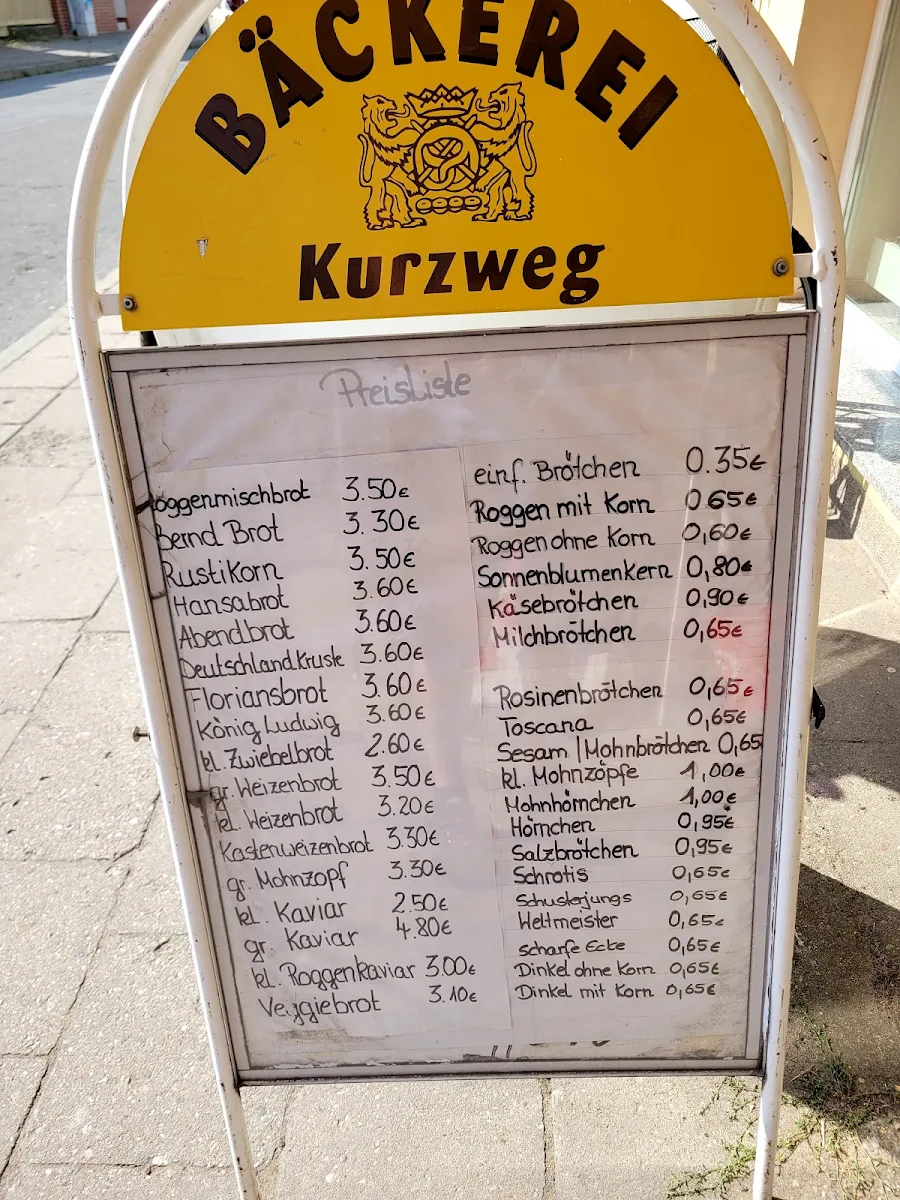 BÄCKEREI
Kurzweg
Preisliste
oggenmischbrot 3.50€
Bernd Brot 3.30€
Rustikorn 3.50€
Hansabrot 3.60€
Abendbrot 3.60€
Deutschlandkruste 3.60€
Floriansbrot 3.60€
König Ludwig 3.60€
kl. Zwiebelbrot 2.60€
gr. Weizenbrot 3.50€
kl. Weizenbrot 3.20€
Kastenweizenbrot 3.30€
gr. Mohnzopf 3.30€
kl. Kaviar 2.50€
gr. Kaviar 4.80€
kl. Roggenkaviar 3.00€
Veggiebrot 3.10€
einf. Brötchen 0.35€
Roggen mit Korn 0 65€
Roggen ohne Korn 0,60€
Sonnenblumenkern 0,80€
Käsebrötchen 0,90€
Milchbrötchen 0,65€
Rosinenbrötchen 0,65€
Toscana 0,65€
Sesam | Mohnbrötchen 0,65
kl. Mohnzöpfe 1,00€
Mohnhörnchen 1,00€
Hörnchen 0,95€
Salzbrötchen 0,95€
Schrotis 0,65€
Schusterjungs 0,65€
Weltmeister 0,65€
scharfe Ecke 0,65€
Dinkel ohne Korn 0,65€
Dinkel mit Korn 0,65€